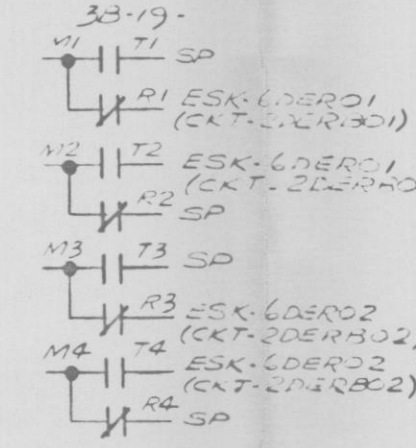 3B-19-
M1 T1 SP
R1 ESK-6DER01
(CKT-2DERB01)
M2 T2 ESK-6DER01
R2 SP
M3 T3 SP
R3 ESK-6DER02
(CKT-2DERB02)
M4 T4 ESK-6DER02
(CKT-2DERB02)
R4 SP